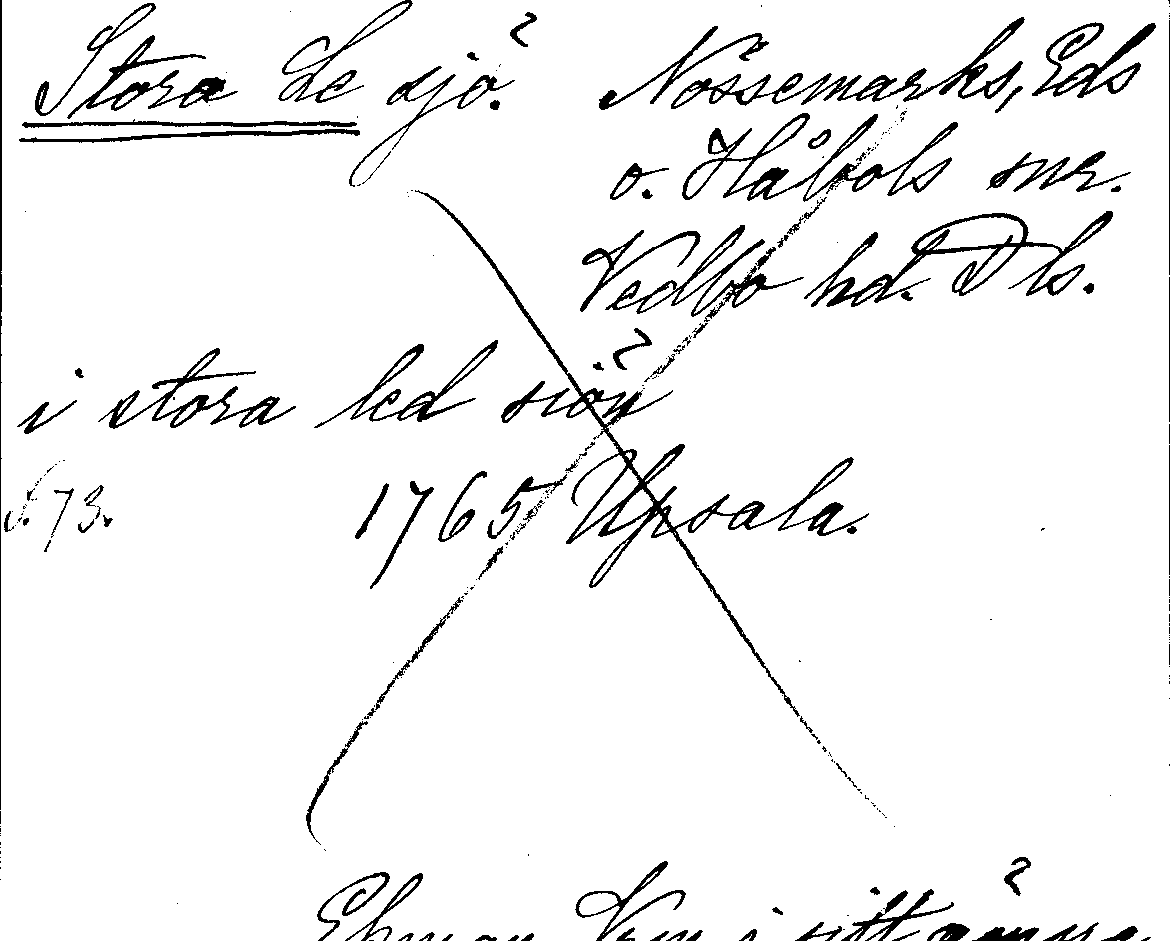 Stora Le sjö. Nössemarks, Eds
o. Håbols snr.
Vedbo hd. Dls.
i stora led siön
s. 73. 1765 Upsala.
Ekman Vrm i sitt